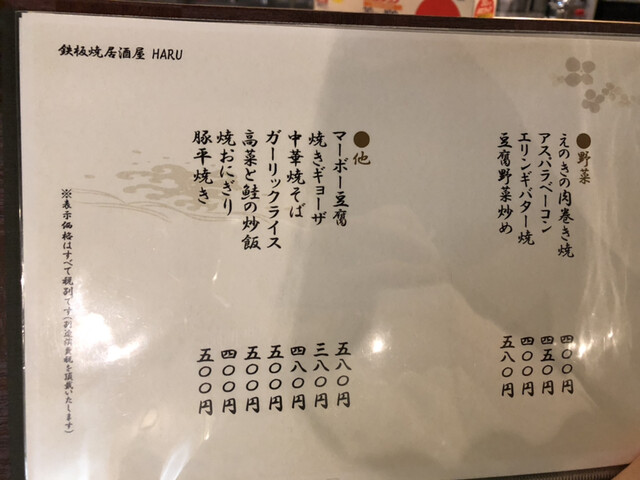 鉄板焼居酒屋 HARU
●野菜
えのきの肉巻き焼 四〇〇円
アスパラベーコン 四五〇円
エリンギバター焼 四〇〇円
豆腐野菜炒め 五八〇円
●他
マーボー豆腐 五八〇円
焼きギョーザ 三八〇円
中華焼そば 四八〇円
ガーリックライス 五〇〇円
高菜と鮭の炒飯 五〇〇円
焼おにぎり 四〇〇円
豚平焼き 五〇〇円
※表示価格はすべて税別です(別途消費税を頂戴いたします)